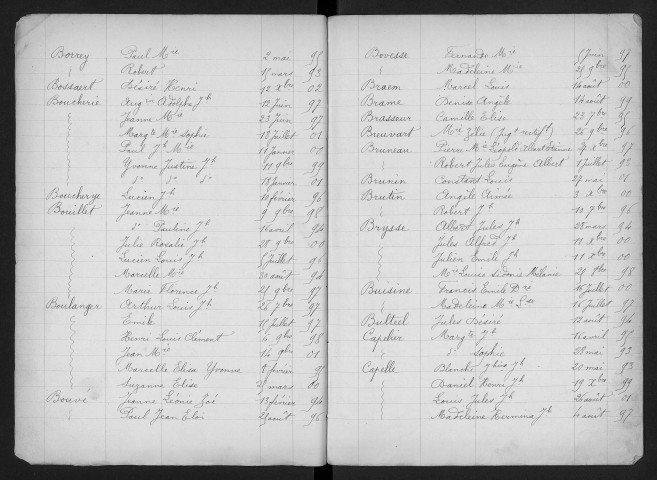 Borrey Paul Mie 2 mai 95
" Robert 15 mars 93
Bossaert Désiré Henri 12 xbre 02
Boucherie Aug in Adolphe Jh 12 juin 97
" Jeanne Mie 23 juin 97
" Margte Mie Sophie 18 juillet 01
" Paul Jh Mie 11 janver 00
" Yvonne Justine Jh 11 9bre 99
" do do do 18 janver 01
Boucherye Lucien Jh 10 février 96
Bouillet Jeanne Mie 9 9bre 98
" do Pauline Jh 16 avril 94
" Julie Rosalie Jh 28 9bre 01
" Lucien Louis Jh 5 juillet 96
" Marcelle Mie 20 août 94
" Marie Florence Jh 21 9bre 97
Boulanger Arthur Louis Jh 26 7bre 97
" Emile 15 juillet 97
" Henri Louis Clément 4 9bre 98
" Jean Mie 14 9bre 01
" Marcelle Elisa Yvonne février 98
" Suzanne Elise mars 00
Bouvé Jeanne Léonie Zoé 13 février 94
" Paul Jean Eloi 29 août 96
Bovesse Fernande Mie juin 97
" Madeleine Mie 21 9bre 95
Braem Marcel Louis 14 août 00
Brame Denise Angèle 14 août 99
Brasseur Camille Elise 23 7bre 95
Breuvart Mie Zélie (jugt rectif) 26 9bre 96
Bruneau Pierre Mie Léopold Albert Etienne xbre 97
" Robert Jules Eugène Albert 1 juillet 93
Brunin Constant Louis 27 mai 01
Brutin Angèle Aimée 3 xbre 00
" Robert Jh 10 7bre 96
Brysse Albert Jules Jh 28 mars 94
" Jules Alfred Jh 11 xbre 00
" Julien Emile Jh 11 xbre 00
" Mie Louise Sidonie Mélanie 98
Buisine Francis Emile Dré 15 juillet 00
" Madeleine Mie Lse 16 juillet 97
Bulteel Jules Désiré 12 août 94
Capelier Margte Jh 16 avril 95
" do Sophie 28 mai 93
Capelle Blanche Jh 20 mai 93
" Daniel Henri Jh 19 xbre 99
" Louis Jules Jh 26 août 01
" Madeleine Hermina Jh 4 août 97